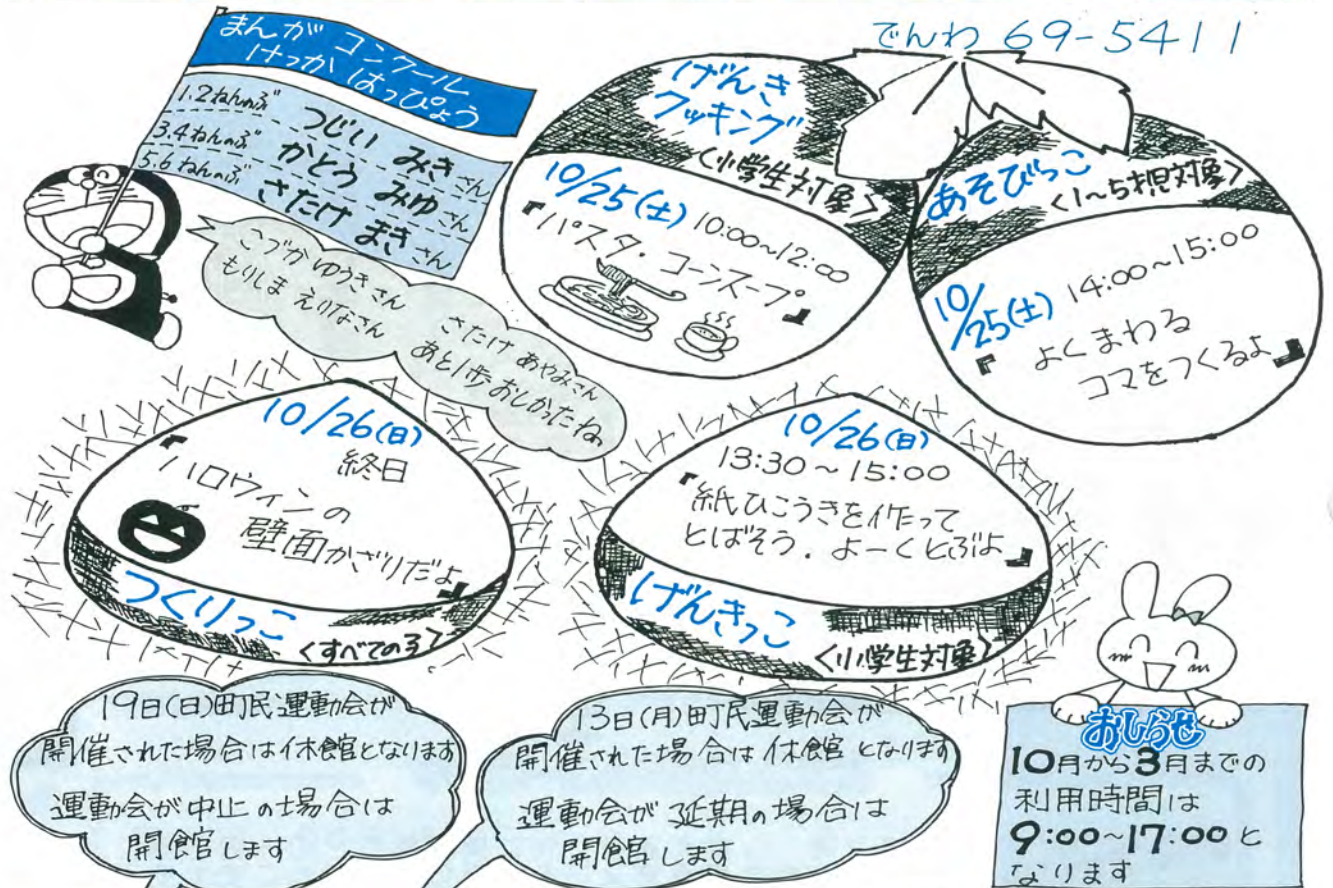 でんわ 69-5411
まんがコンクール
けっかはっぴょう
1.2ねんのぶ つじい みきさん
3.4ねんのぶ かとう みゆさん
5.6ねんのぶ さたけ まきさん
こづかゆうきさん
もりしま えりなさん
さたけ あやみさん
あと1歩おしかったね
げんき
クッキング
<小学生対象>
10/25(土) 10:00~12:00
『パスタ・コーンスープ』
あそびっこ
<1~5才児対象>
10/25(土) 14:00~15:00
『よくまわる
コマをつくるよ』
10/26(日)
終日
『ハロウィンの
壁面かざりだよ』
つくりっこ
<すべての子>
10/26(日)
13:30~15:00
『紙ひこうきを作って
とばそう.よーくとぶよ』
げんきっこ
<小学生対象>
19日(日)町民運動会が
開催された場合は休館となります
運動会が中止の場合は
開館します
13日(月)町民運動会が
開催された場合は休館となります
運動会が延期の場合は
開館します
おしらせ
10月から3月までの
利用時間は
9:00~17:00と
なります